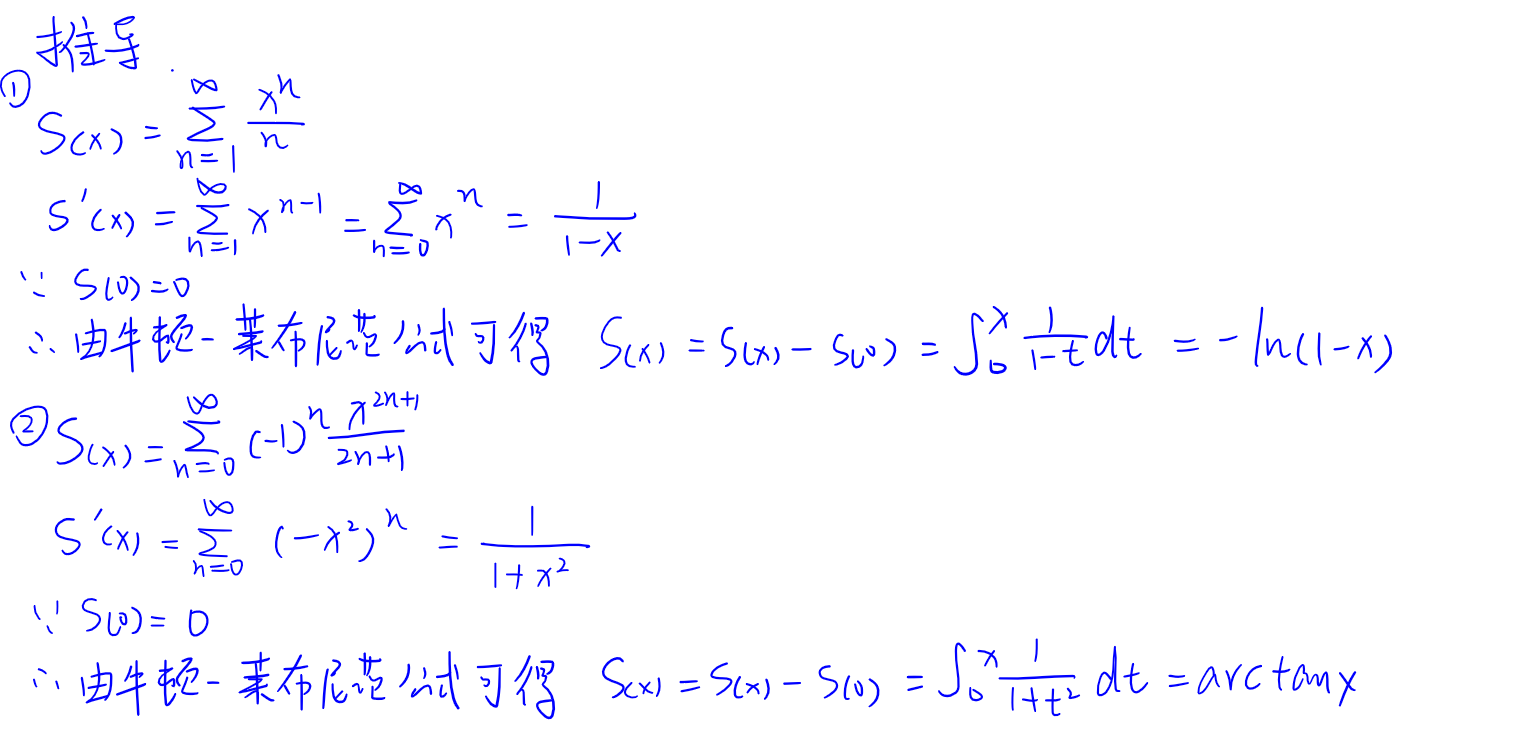 推导
① S(x) = ∑_{n=1}^{∞} x^n/n
S'(x) = ∑_{n=1}^{∞} x^{n-1} = ∑_{n=0}^{∞} x^n = 1/(1-x)
∵ S(0)=0
∴ 由牛顿-莱布尼茨公式可得 S(x) = S(x) - S(0) = ∫_0^x 1/(1-t) dt = -ln(1-x)
② S(x) = ∑_{n=0}^{∞} (-1)^n x^{2n+1}/(2n+1)
S'(x) = ∑_{n=0}^{∞} (-x²)^n = 1/(1+x²)
∵ S(0) = 0
∴ 由牛顿-莱布尼茨公式可得 S(x) = S(x) - S(0) = ∫_0^x 1/(1+t²) dt = arctanx